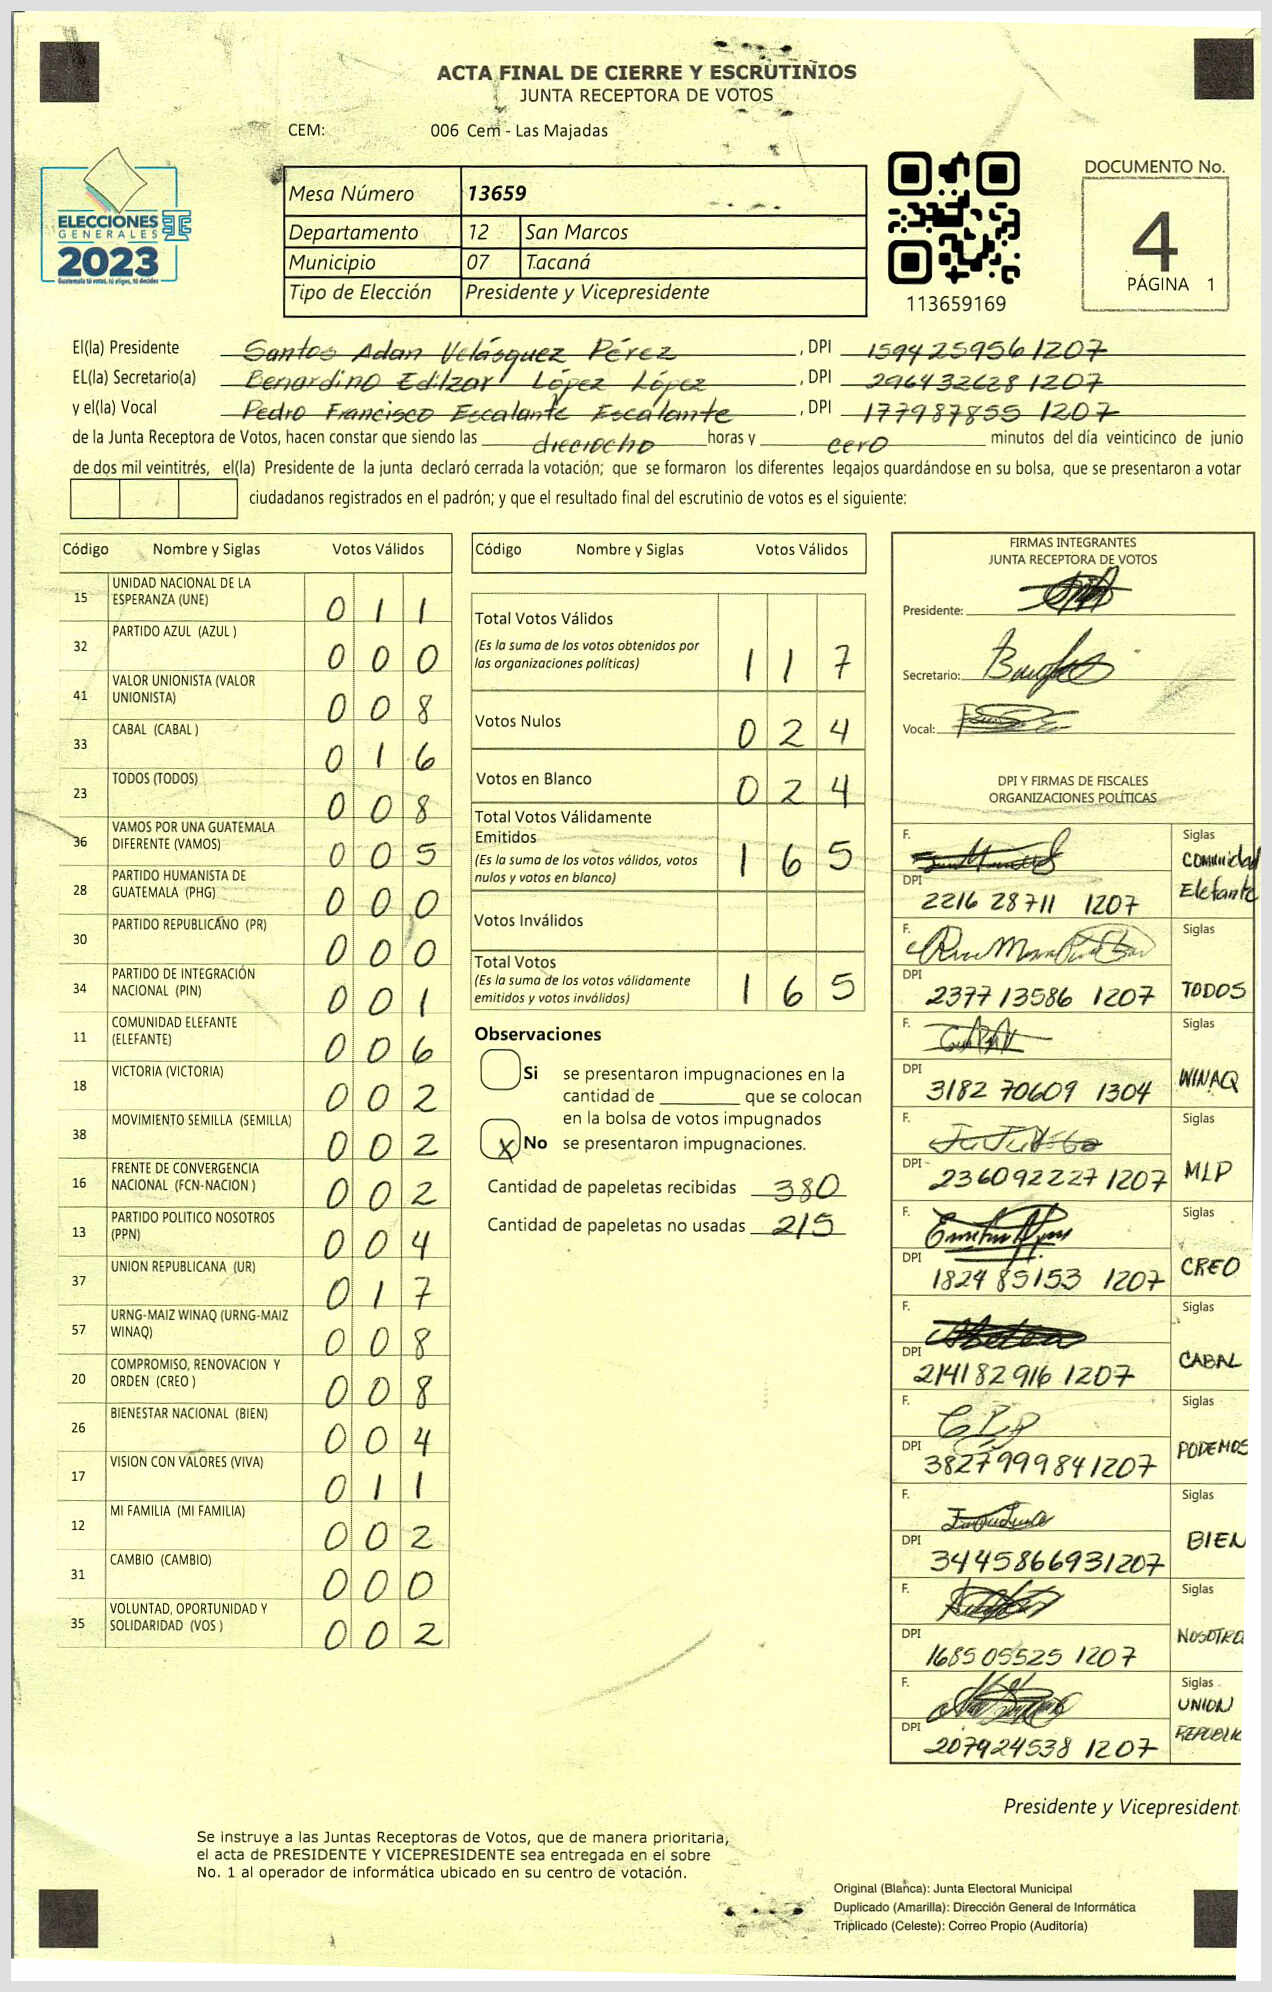 ACTA FINAL DE CIERRE Y ESCRUTINIOS
JUNTA RECEPTORA DE VOTOS
CEM: 006 Cem - Las Majadas
ELECCIONES
GENERALES
2023
Guatemala tú votas, tú eliges, tú decides
Mesa Número 13659
Departamento 12 San Marcos
Municipio 07 Tacaná
Tipo de Elección Presidente y Vicepresidente
113659169
DOCUMENTO No.
4
PÁGINA 1
El(la) Presidente Santos Adan Velásquez Pérez, DPI 159425956 1207
EL(la) Secretario(a) Benardino Edilzar López López, DPI 296432628 1207
y el(la) Vocal Pedro Francisco Escalante Escalante, DPI 177987855 1207
de la Junta Receptora de Votos, hacen constar que siendo las dieciocho horas y cero minutos del día veinticinco de junio
de dos mil veintitrés, el(la) Presidente de la junta declaró cerrada la votación; que se formaron los diferentes legajos guardándose en su bolsa, que se presentaron a votar
ciudadanos registrados en el padrón; y que el resultado final del escrutinio de votos es el siguiente:
Código Nombre y Siglas Votos Válidos
15 UNIDAD NACIONAL DE LA ESPERANZA (UNE) 0 1 1
32 PARTIDO AZUL (AZUL ) 0 0 0
41 VALOR UNIONISTA (VALOR UNIONISTA) 0 0 8
33 CABAL (CABAL ) 0 1 6
23 TODOS (TODOS) 0 0 8
36 VAMOS POR UNA GUATEMALA DIFERENTE (VAMOS) 0 0 5
28 PARTIDO HUMANISTA DE GUATEMALA (PHG) 0 0 0
30 PARTIDO REPUBLICANO (PR) 0 0 0
34 PARTIDO DE INTEGRACIÓN NACIONAL (PIN) 0 0 1
11 COMUNIDAD ELEFANTE (ELEFANTE) 0 0 6
18 VICTORIA (VICTORIA) 0 0 2
38 MOVIMIENTO SEMILLA (SEMILLA) 0 0 2
16 FRENTE DE CONVERGENCIA NACIONAL (FCN-NACION ) 0 0 2
13 PARTIDO POLITICO NOSOTROS (PPN) 0 0 4
37 UNION REPUBLICANA (UR) 0 1 7
57 URNG-MAIZ WINAQ (URNG-MAIZ WINAQ) 0 0 8
20 COMPROMISO, RENOVACION Y ORDEN (CREO ) 0 0 8
26 BIENESTAR NACIONAL (BIEN) 0 0 4
17 VISION CON VALORES (VIVA) 0 1 1
12 MI FAMILIA (MI FAMILIA) 0 0 2
31 CAMBIO (CAMBIO) 0 0 0
35 VOLUNTAD, OPORTUNIDAD Y SOLIDARIDAD (VOS ) 0 0 2
Código Nombre y Siglas Votos Válidos
Total Votos Válidos
(Es la suma de los votos obtenidos por
las organizaciones políticas) 1 1 7
Votos Nulos 0 2 4
Votos en Blanco 0 2 4
Total Votos Válidamente
Emitidos
(Es la suma de los votos válidos, votos
nulos y votos en blanco) 1 6 5
Votos Inválidos
Total Votos
(Es la suma de los votos válidamente
emitidos y votos inválidos) 1 6 5
Observaciones
Si se presentaron impugnaciones en la
cantidad de ________ que se colocan
en la bolsa de votos impugnados
X No se presentaron impugnaciones.
Cantidad de papeletas recibidas 380
Cantidad de papeletas no usadas 215
FIRMAS INTEGRANTES
JUNTA RECEPTORA DE VOTOS
Presidente:
Secretario:
Vocal:
DPI Y FIRMAS DE FISCALES
ORGANIZACIONES POLÍTICAS
F. Siglas
COMUNIDAD
DPI 2216 28711 1207 Elefante
F. Siglas
DPI 2377 13586 1207 TODOS
F. Siglas
DPI 3182 70609 1304 WINAQ
F. Siglas
DPI 236092227 1207 MLP
F. Siglas
DPI 1824 85153 1207 CREO
F. Siglas
DPI 214182916 1207 CABAL
F. Siglas
DPI 382799984 1207 PODEMOS
F. Siglas
DPI 344586693 1207 BIEN
F. Siglas
DPI 168505525 1207 NOSOTRO
F. Siglas
UNION
DPI 207924538 1207 REPUBLIC
Presidente y Vicepresident
Se instruye a las Juntas Receptoras de Votos, que de manera prioritaria,
el acta de PRESIDENTE Y VICEPRESIDENTE sea entregada en el sobre
No. 1 al operador de informática ubicado en su centro de votación.
Original (Blanca): Junta Electoral Municipal
Duplicado (Amarilla): Dirección General de Informática
Triplicado (Celeste): Correo Propio (Auditoría)